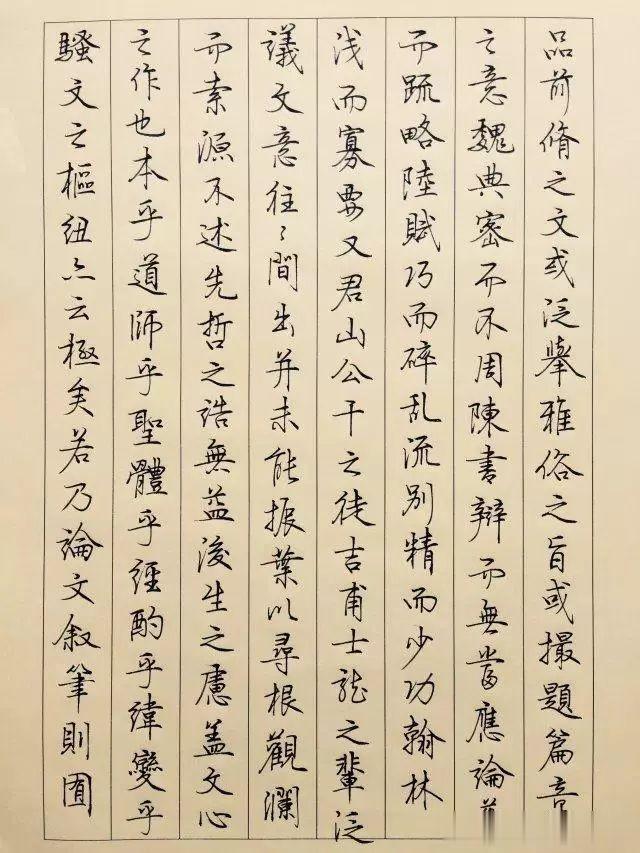 品前脩之文或泛舉雅俗之旨或撮題篇章
之意魏典密而不周陳書辯而無當應論
而疏略陸賦巧而碎乱流别精而少功翰林
浅而寡要又君山公干之徒吉甫士龙之輩泛
議文意往々間出并未能振葉以尋根觀瀾
而索源不述先哲之诰無益後生之慮盖文心
之作也本乎道師乎聖體乎經酌乎緯變乎
騷文之樞纽亦云極矣若乃論文叙筆則囿